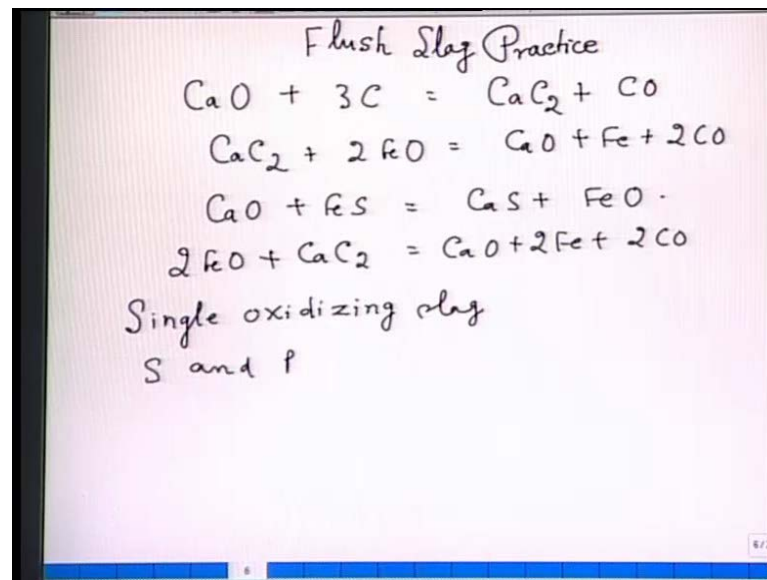 Flush Slag Practice
CaO + 3C = CaC₂ + CO
CaC₂ + 2FeO = CaO + Fe + 2CO
CaO + FeS = CaS + FeO.
2FeO + CaC₂ = CaO + 2Fe + 2CO
Single oxidizing slag
S and P
6/
6